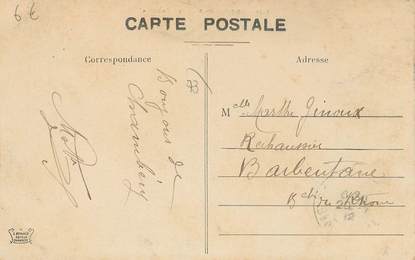 6 €
CARTE POSTALE
Correspondance
Adresse
Bonjour de
Chambéry
Mlle Marthe Ginoux
Rechaussier
Barbentane
B. du Rhône
12